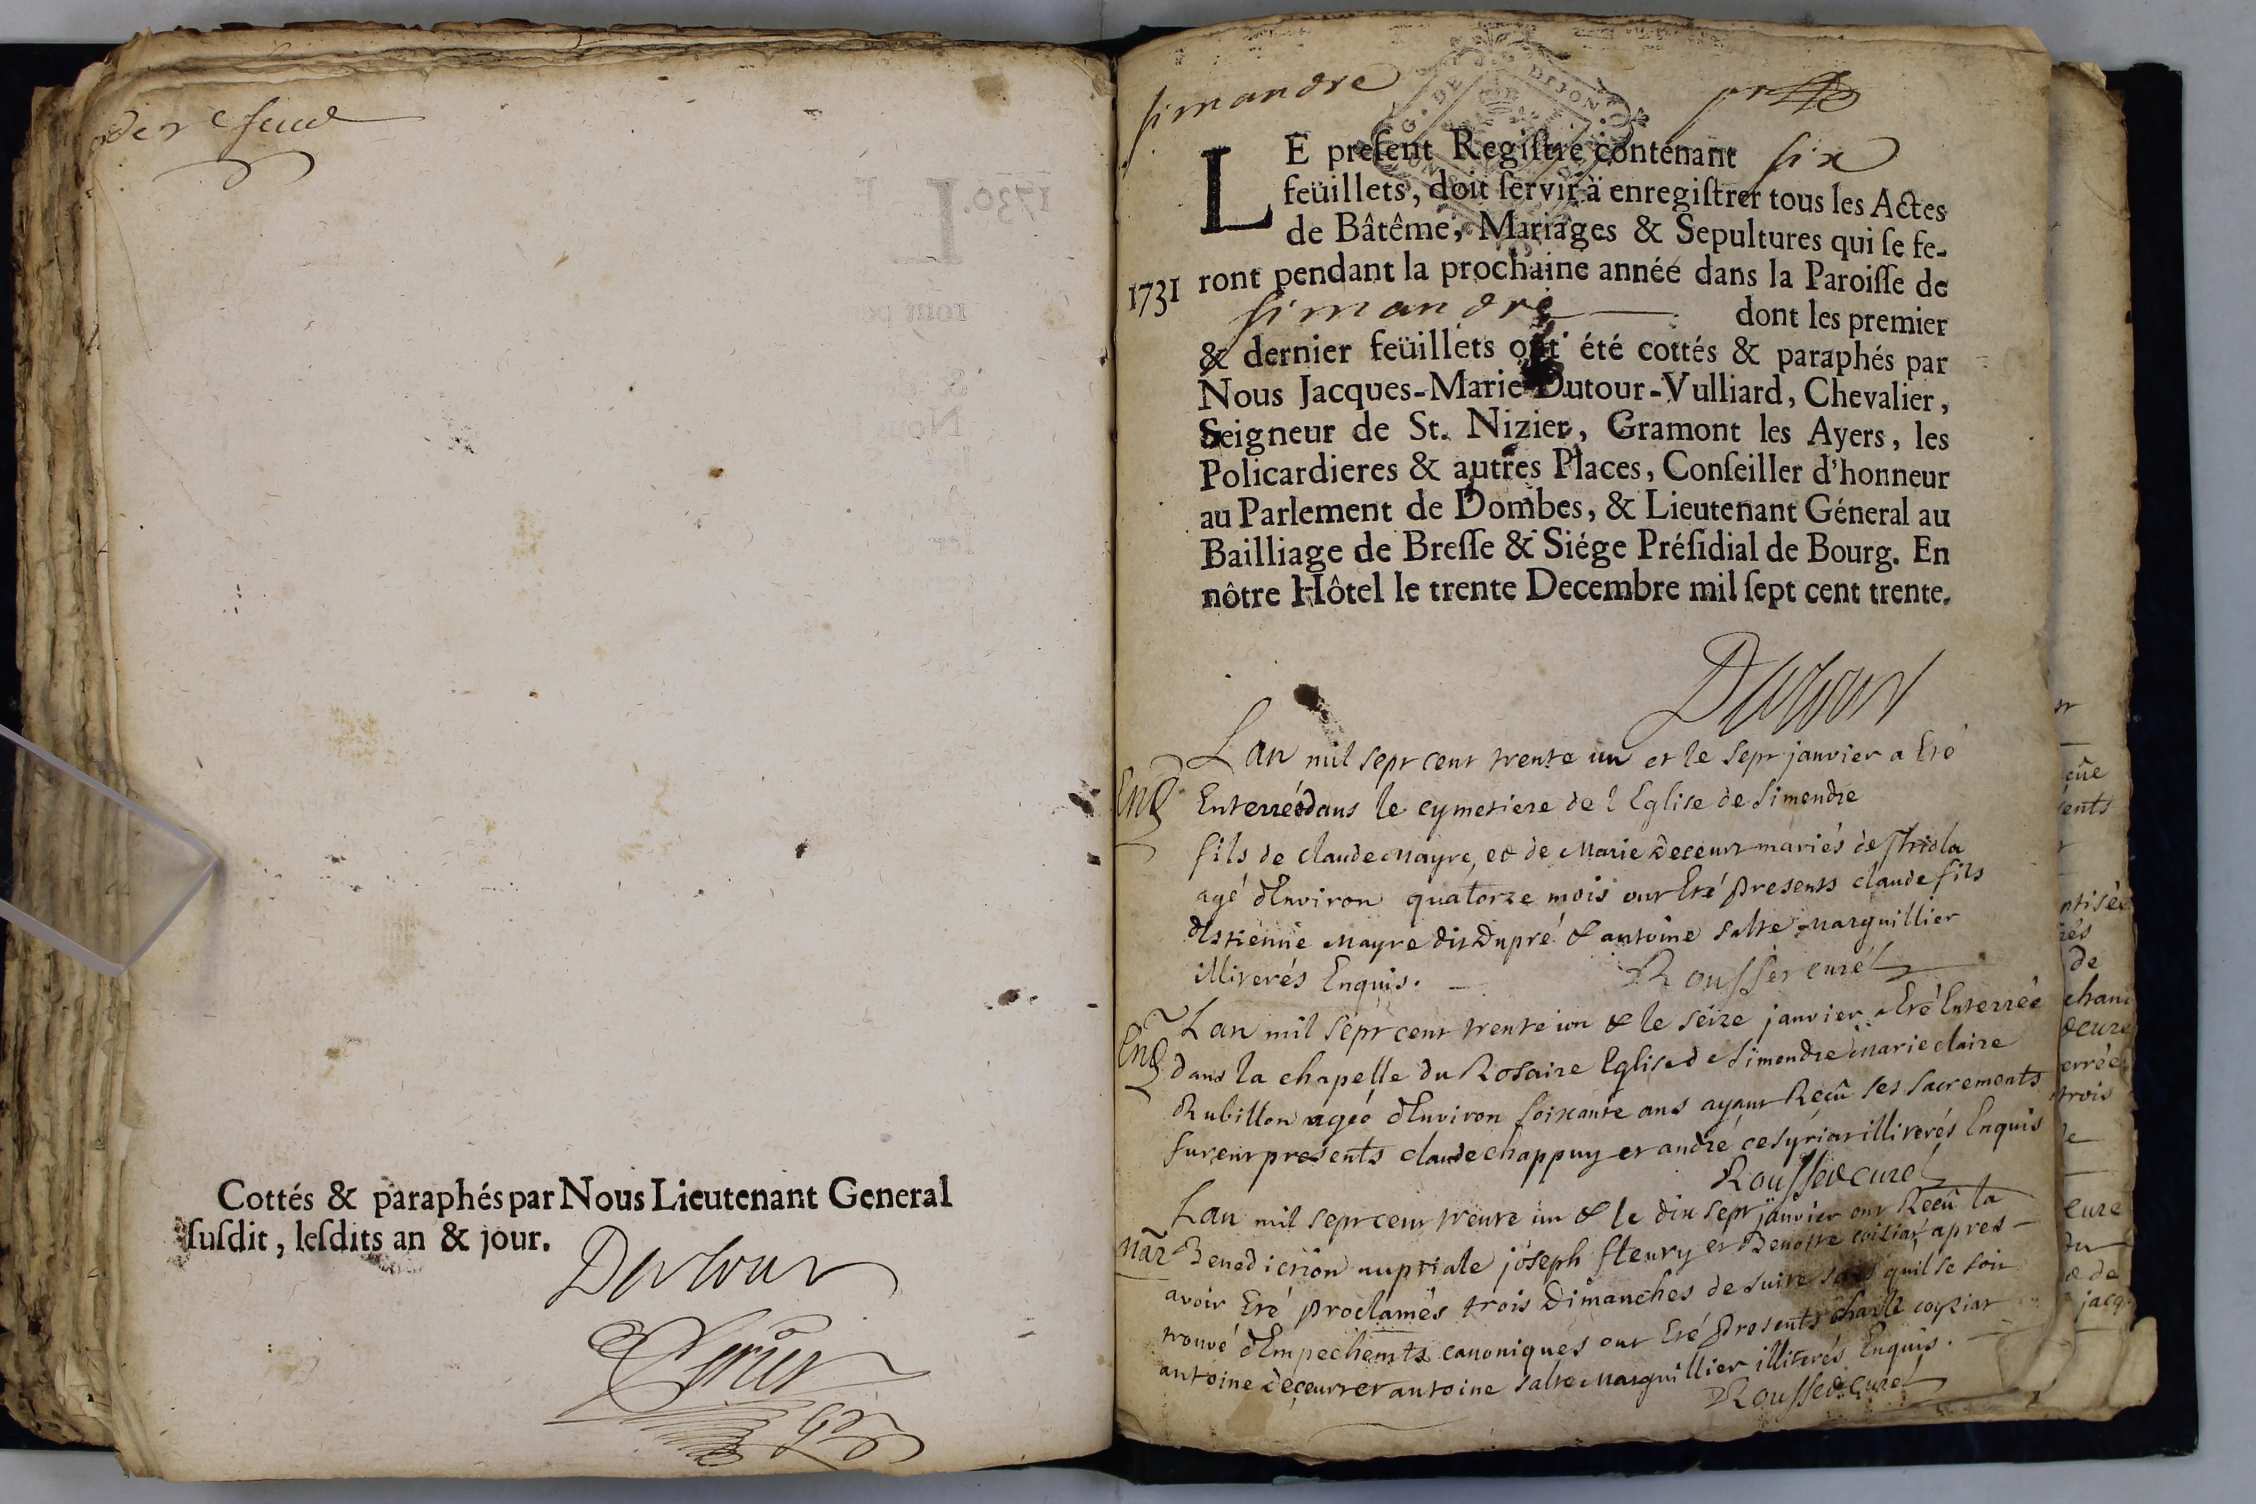 der e feuil
Cottés & paraphés par Nous Lieutenant General
ſuſdit, leſdits an & jour.
Dutour
simandre
LE preſent Regiſtre contenant six
feüillets, doit ſervir à enregiſtrer tous les Actes
de Bâtême, Mariages & Sepultures qui ſe fe-
1731 ront pendant la prochaine année dans la Paroiſſe de
simandre dont les premier
& dernier feüillets ont été cottés & paraphés par
Nous Jacques-Marie Dutour-Vulliard, Chevalier,
Seigneur de St. Nizier, Gramont les Ayers, les
Policardieres & autres Places, Conſeiller d'honneur
au Parlement de Dombes, & Lieutenant Géneral au
Bailliage de Breſſe & Siége Préſidial de Bourg. En
nôtre Hôtel le trente Decembre mil ſept cent trente.
Dutour
Lan mil sept cent trente un et le sept janvier a Eté
Enterré dans le cymetiere de l Eglise de Simendre
fils de claude Mayre, et de Marie Deceurt mariés de
agé dEnviron quatorze mois ont Eté presents claude fils
dEstienne Mayre dit Dupré & antoine salte Marguillier
illiterés Enquis. Rousset curé
Lan mil sept cent trente un & le seize janvier a Eté Enterrée
dans la chapelle du Rosaire Eglise de Simendre Marie claire
Rubillon ageé dEnviron soixante ans ayant Reçû ses sacrements
furent presents claude chappuy et andré illiterés Enquis
Rousset curé
Lan mil sept cent trente un & le dix sept janvier ont Reçû la
mar Benediction nuptiale joseph fleury et Benoitte apres
avoir Eté proclamés trois Dimanches de suite sans quil se soit
trouvé dEmpechemts canoniques ont Eté presents charle coiziat
antoine deceurt et antoine salte Marguillier illiterés Enquis.
Rousset Curé